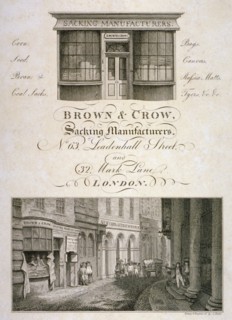 SACKING MANUFACTURERS
Corn
Seed
Bean &
Coal Sacks.
Bags
Canvas,
Russia Matts,
BROWN & CROW,
Sacking Manufacturers,
Leadenhall Street,
and
Mark Lane,
LONDON.